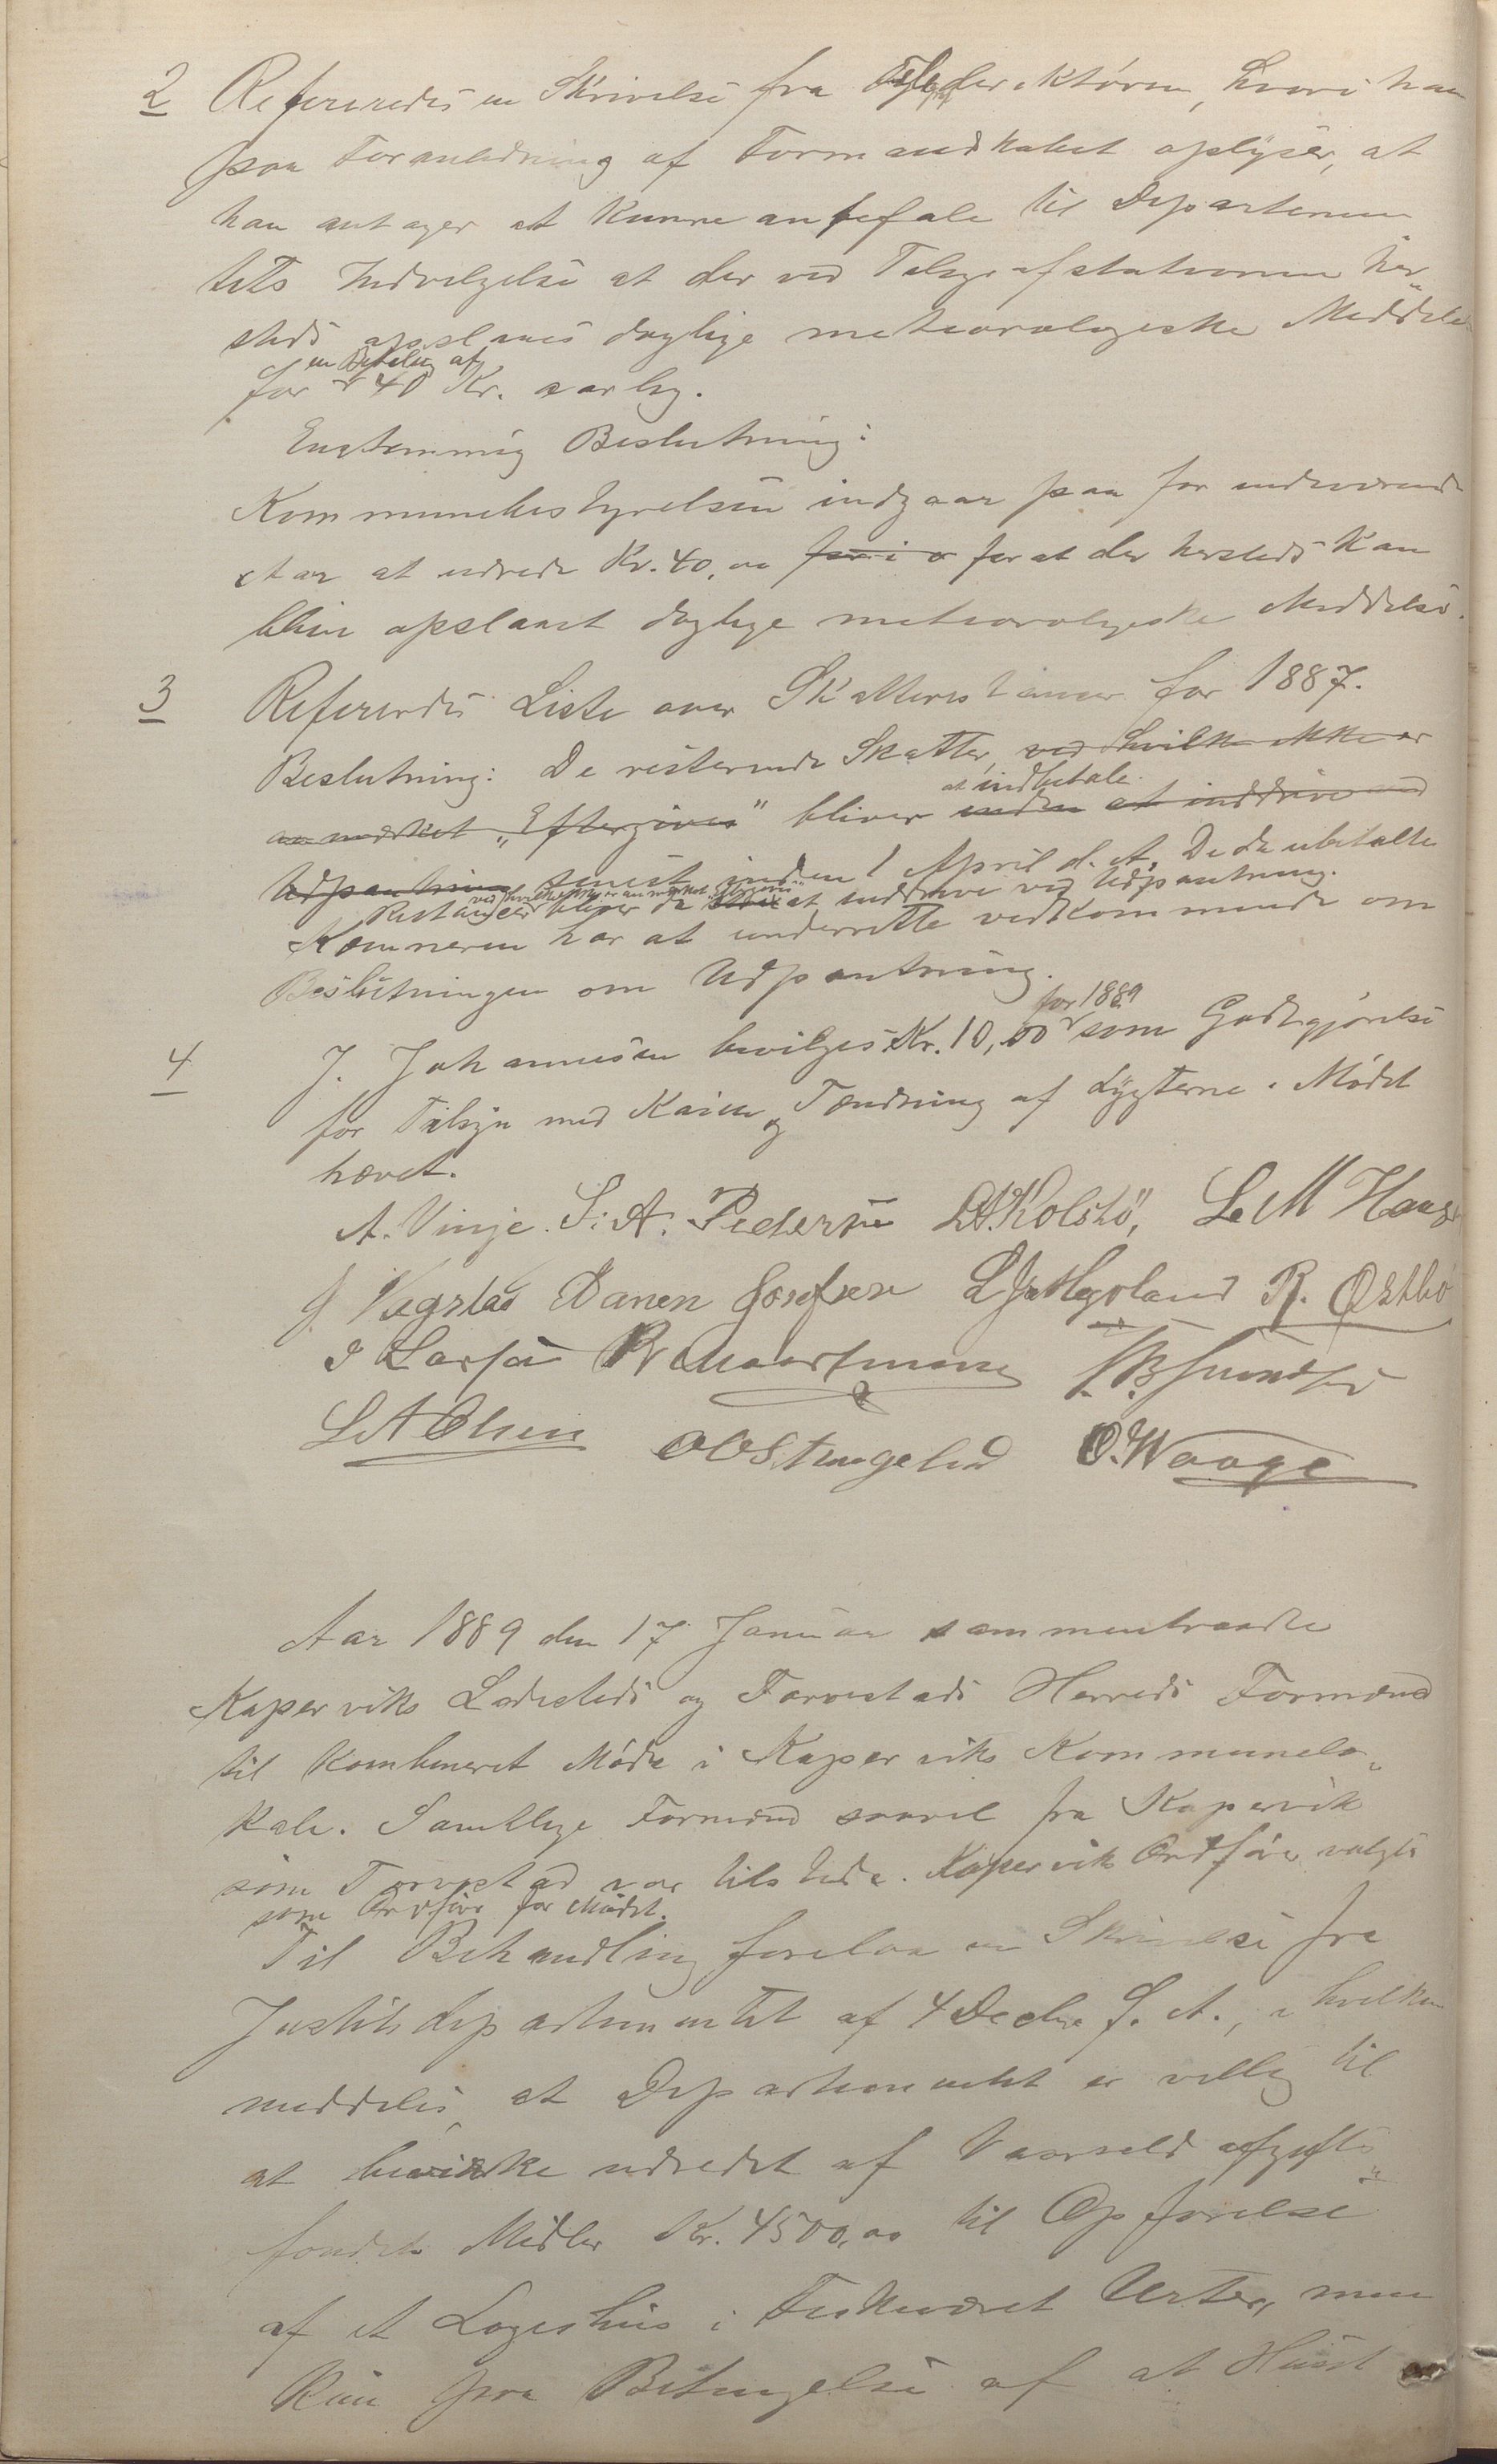 2 Refereredes en Skrivelse fra Telegrafdirektøren, hvori han
paa Foranledning af Formandskabet oplyser, at
han antager at kunne anbefale til Departemen
tets Indvilgelse at der ved Telegrafstationen her-
steds opslaaes daglige meteorologiske Meddelelser
for en Betaling af 40 Kr. aarlig.
Enstemmig Beslutning:
Kommunebestyrelsen indgaar paa for indeværende
Aar at udrede Kr. 40,00 for at der hersteds kan
blive opslaaet daglige meteorologiske Meddelelser.
3 Refereredes Liste over Skatterestancer for 1887.
Beslutning: De resterende Skatter, ved hvilke ikke er
anmærket „Eftergives" bliver at indbetale inden at inddrive ved
Udpantning senest inden 1 April d. A. De da ubetalte
Restancer ved hvilke ikke er anmærket „Eftergives" bliver da at inddrive ved Udpantning.
Kæmneren har at underrette vedkommende om
Beslutningen om Udpantning.
4 J. Johannesen bevilges Kr. 10,00 for 1889 som Godtgjørelse
for Tilsyn med Kaien og Tænding af Lygterne. Mødet
hævet.
A. Vinje. S. A. Pedersen L.A. Kolstø, L. M Haager
J. Vegstad Danen Josefsen L. J. Helgoland R. Østbø
I Larsen
L A Olsen O O Stangeland O. Waage
Aar 1889 den 17 Januar sammentraadte
Kopervik's Ladesteds og Torvestads Herreds Formænd
til kombineret Møde i Koperviks Kommunelo-
kale. Samtlige Formænd saavel fra Kopervik
som Torvestad var tilstede. Kopervik Ordfører valgtes
som Ordfører for Mødet.
Til Behandling forelaa en Skrivelse fra
Justitsdepartementet af 4 Decbr f. A., i hvilken
meddeles, at Departementet er villig til
at bevirke udredet af Vaarsildafgifts-
fondets Midler Kr. 4500,00 til Opførelse
af et Logishus i Fiskeværet Urter, men
kun paa Betingelse af at Huset